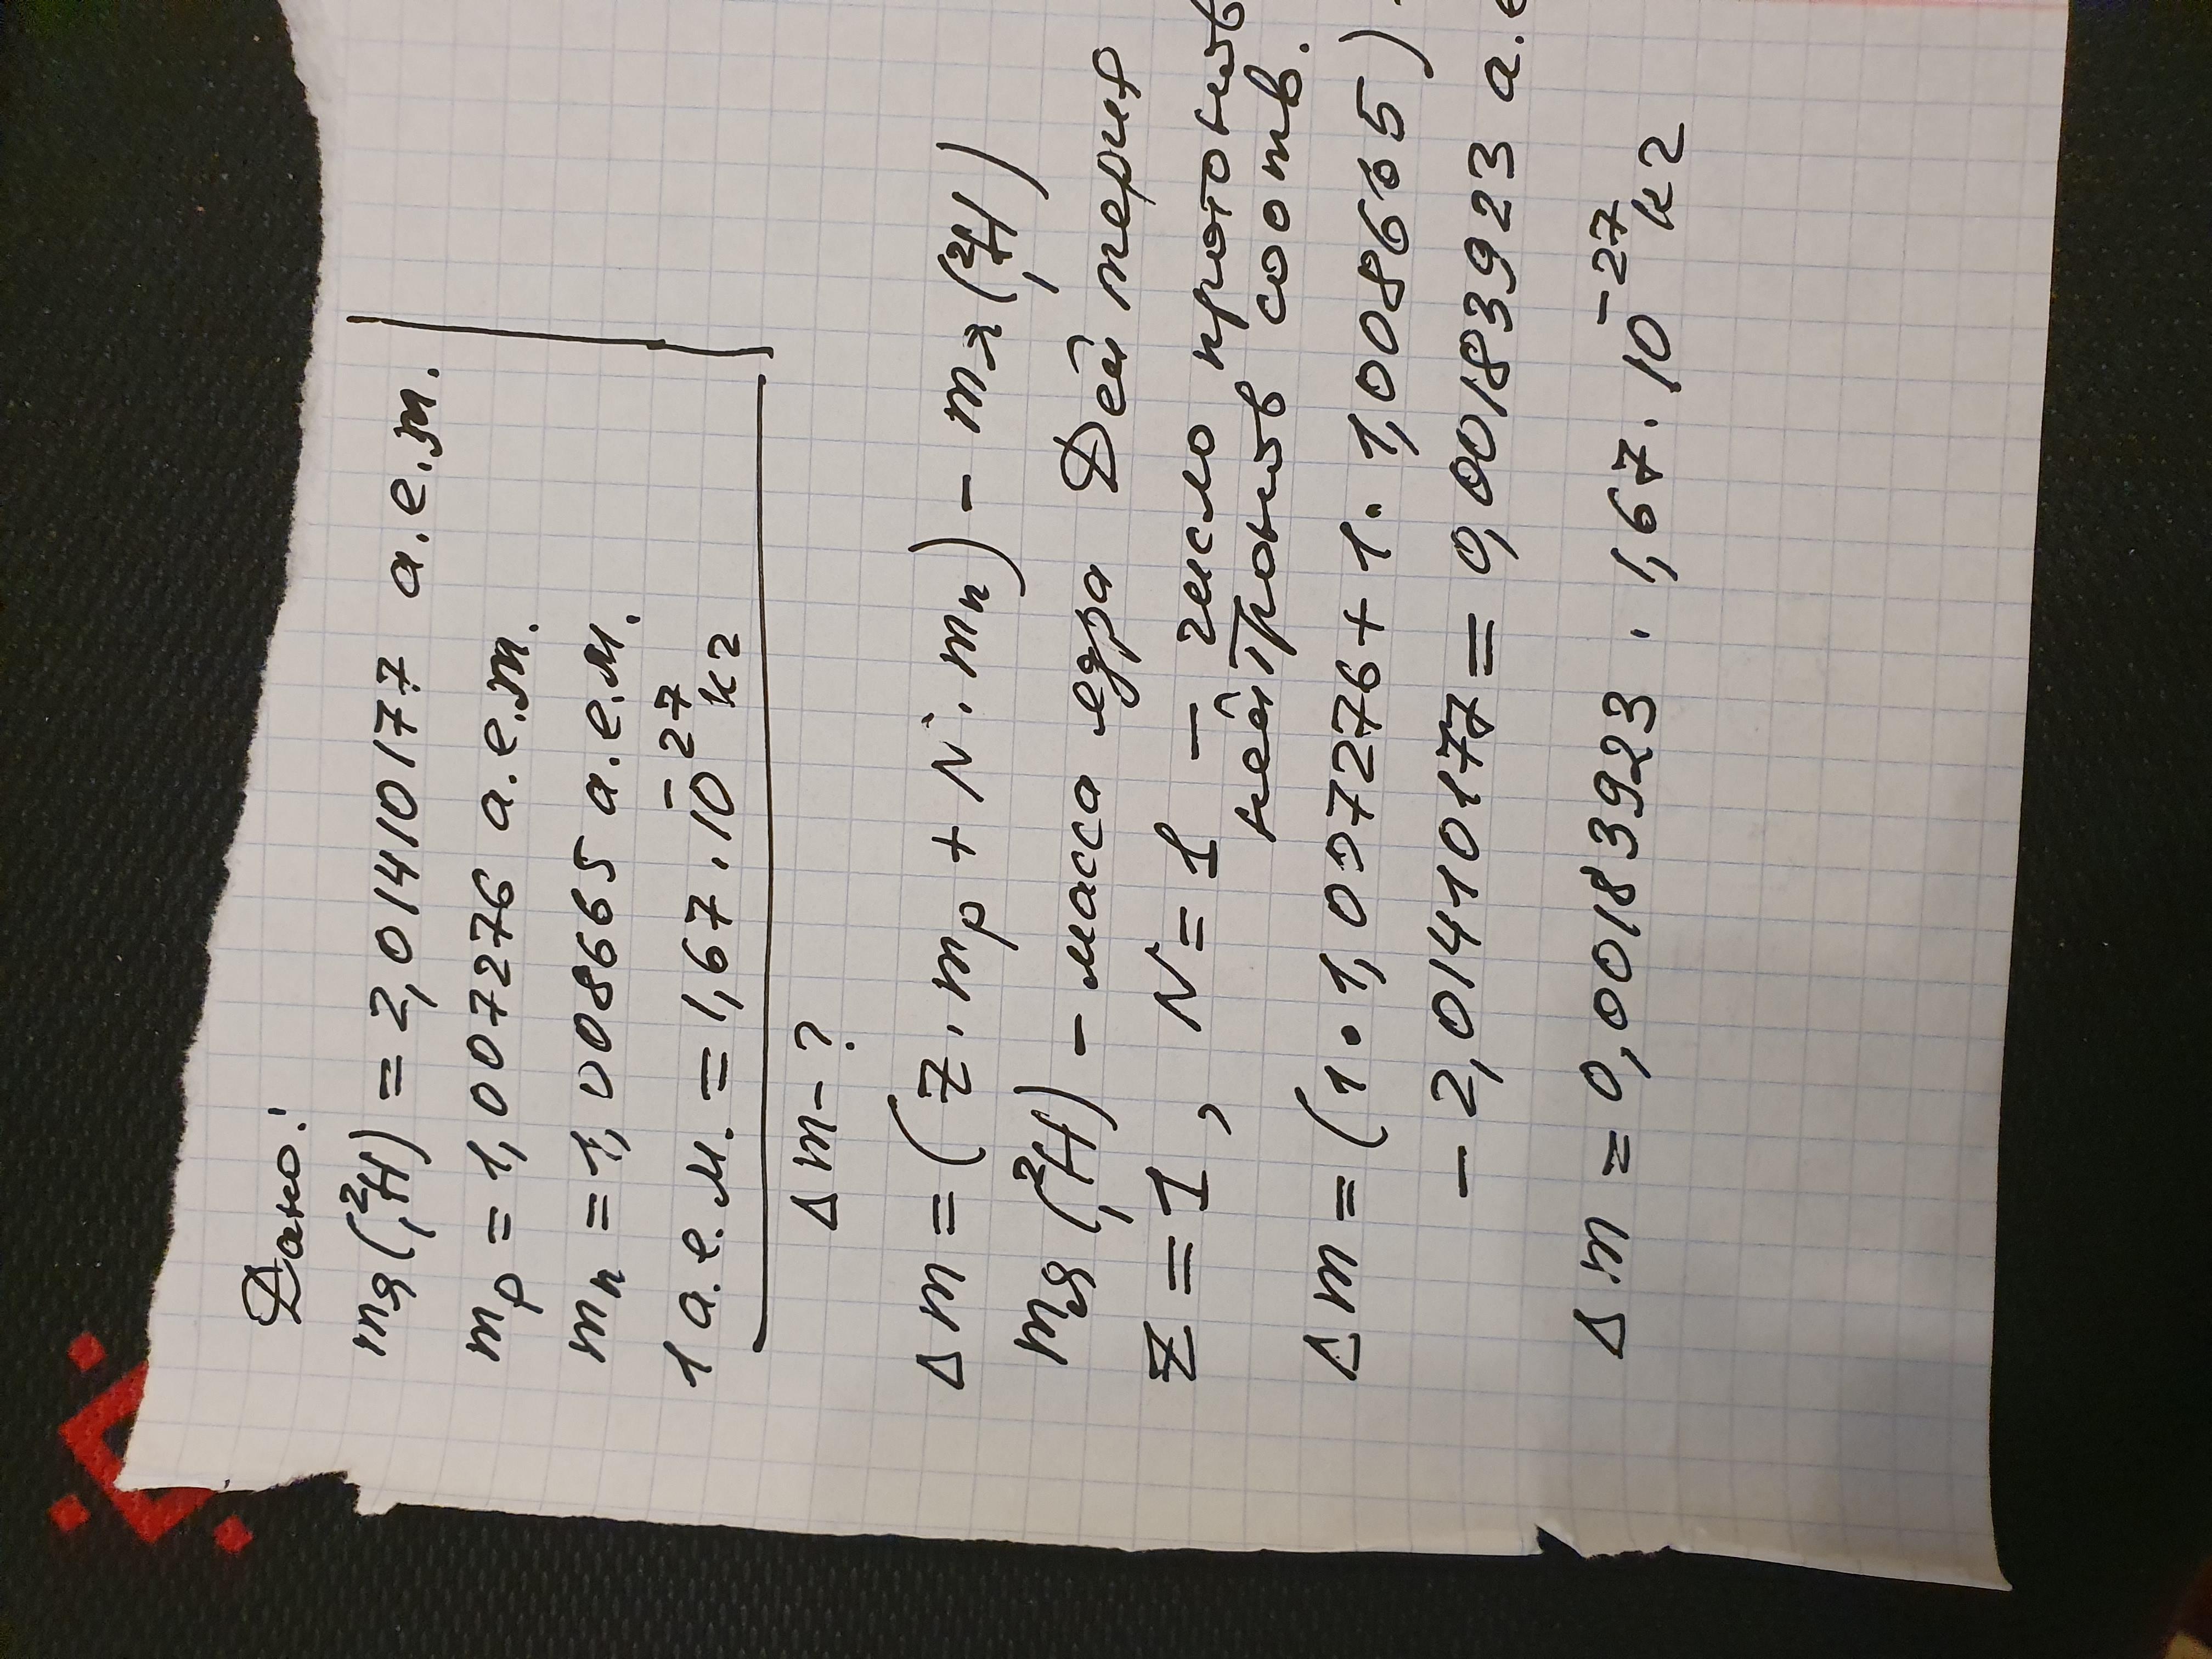 Дано:
mя(²₁H) = 2,0141017 7 а.е.м.
mp = 1,007276 а.е.м.
mn = 1,008665 а.е.м.
1 а.е.м. = 1,67 · 10⁻²⁷ кг
Δm - ?
Δm = (Z · mp + N · mn) - mя(²₁H)
mя(²₁H) - масса ядра Дейтерия
Z = 1, N = 1 - число протонов
нейтронов соотв.
Δm = (1 · 1,007276 + 1 · 1,008665)
- 2,01410177 = 0,00183923 а.е
Δm = 0,00183923 · 1,67 · 10⁻²⁷ кг